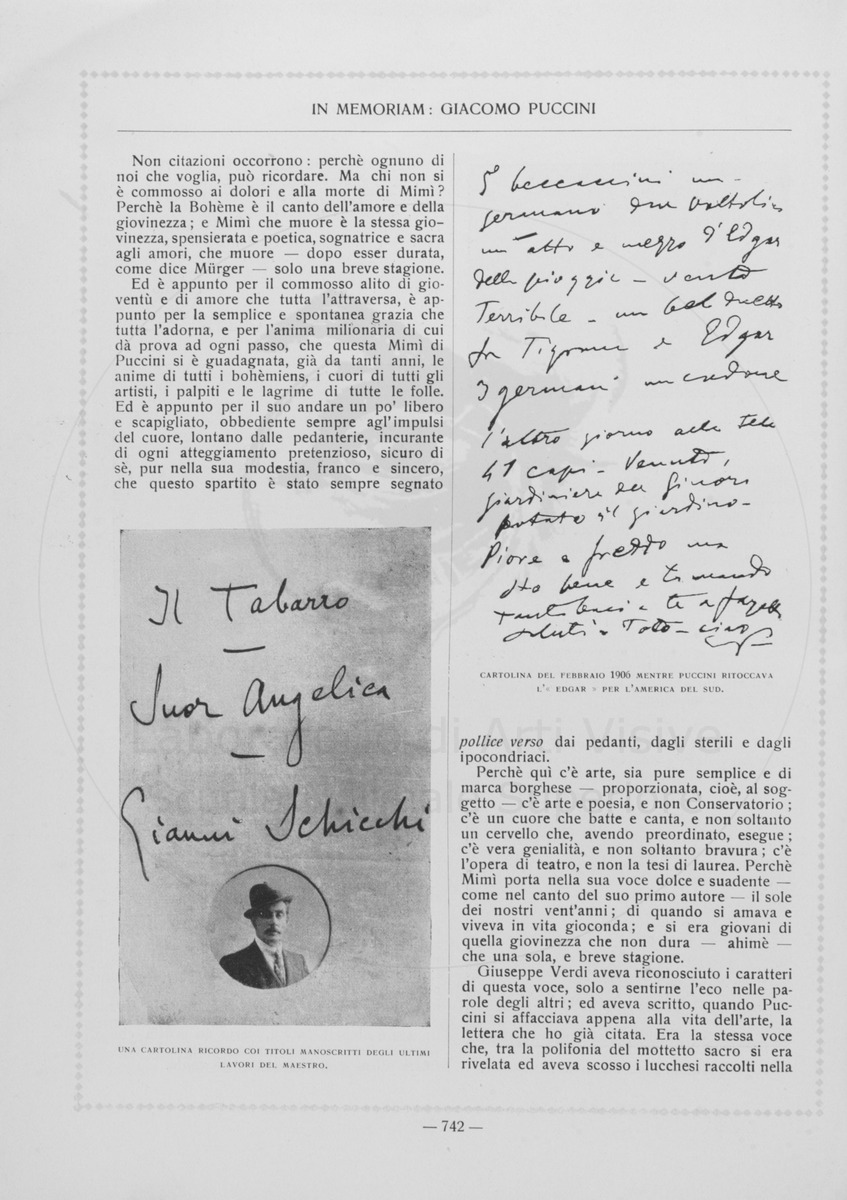 IN MEMORIAM: GIACOMO PUCCINI
Non citazioni occorrono: perchè ognuno di
noi che voglia, può ricordare. Ma chi non si
è commosso ai dolori e alla morte di Mimì?
Perchè la Bohème è il canto dell'amore e della
giovinezza; e Mimì che muore è la stessa gio-
vinezza, spensierata e poetica, sognatrice e sacra
agli amori, che muore — dopo esser durata,
come dice Mürger — solo una breve stagione.
Ed è appunto per il commosso alito di gio-
ventù e di amore che tutta l'attraversa, è ap-
punto per la semplice e spontanea grazia che
tutta l'adorna, e per l'anima milionaria di cui
dà prova ad ogni passo, che questa Mimì di
Puccini si è guadagnata, già da tanti anni, le
anime di tutti i bohèmiens, i cuori di tutti gli
artisti, i palpiti e le lagrime di tutte le folle.
Ed è appunto per il suo andare un po' libero
e scapigliato, obbediente sempre agl'impulsi
del cuore, lontano dalle pedanterie, incurante
di ogni atteggiamento pretenzioso, sicuro di
sè, pur nella sua modestia, franco e sincero,
che questo spartito è stato sempre segnato
Il Tabarro
—
Suor Angelica
—
Gianni Schicchi
UNA CARTOLINA RICORDO COI TITOLI MANOSCRITTI DEGLI ULTIMI
LAVORI DEL MAESTRO.
5 beccaccini un
germano
un atto e mezzo d'Edgar
delle pioggie - vento
Terribile - un bel duetto
fra Tigrana e Edgar
3 germani
l'altro giorno alla Tele
41 capi - Venuto,
giardiniere da Ginori
potato il giardino -
Piove e freddo ma
sto bene e ti mando
tanti baci a te
saluti a Toto - ciao
CARTOLINA DEL FEBBRAIO 1906 MENTRE PUCCINI RITOCCAVA
L'« EDGAR » PER L'AMERICA DEL SUD.
pollice verso dai pedanti, dagli sterili e dagli
ipocondriaci.
Perchè quì c'è arte, sia pure semplice e di
marca borghese — proporzionata, cioè, al sog-
getto — c'è arte e poesia, e non Conservatorio;
c'è un cuore che batte e canta, e non soltanto
un cervello che, avendo preordinato, esegue;
c'è vera genialità, e non soltanto bravura; c'è
l'opera di teatro, e non la tesi di laurea. Perchè
Mimì porta nella sua voce dolce e suadente —
come nel canto del suo primo autore — il sole
dei nostri vent'anni; di quando si amava e
viveva in vita gioconda; e si era giovani di
quella giovinezza che non dura — ahimè —
che una sola, e breve stagione.
Giuseppe Verdi aveva riconosciuto i caratteri
di questa voce, solo a sentirne l'eco nelle pa-
role degli altri; ed aveva scritto, quando Puc-
cini si affacciava appena alla vita dell'arte, la
lettera che ho già citata. Era la stessa voce
che, tra la polifonia del mottetto sacro si era
rivelata ed aveva scosso i lucchesi raccolti nella
— 742 —